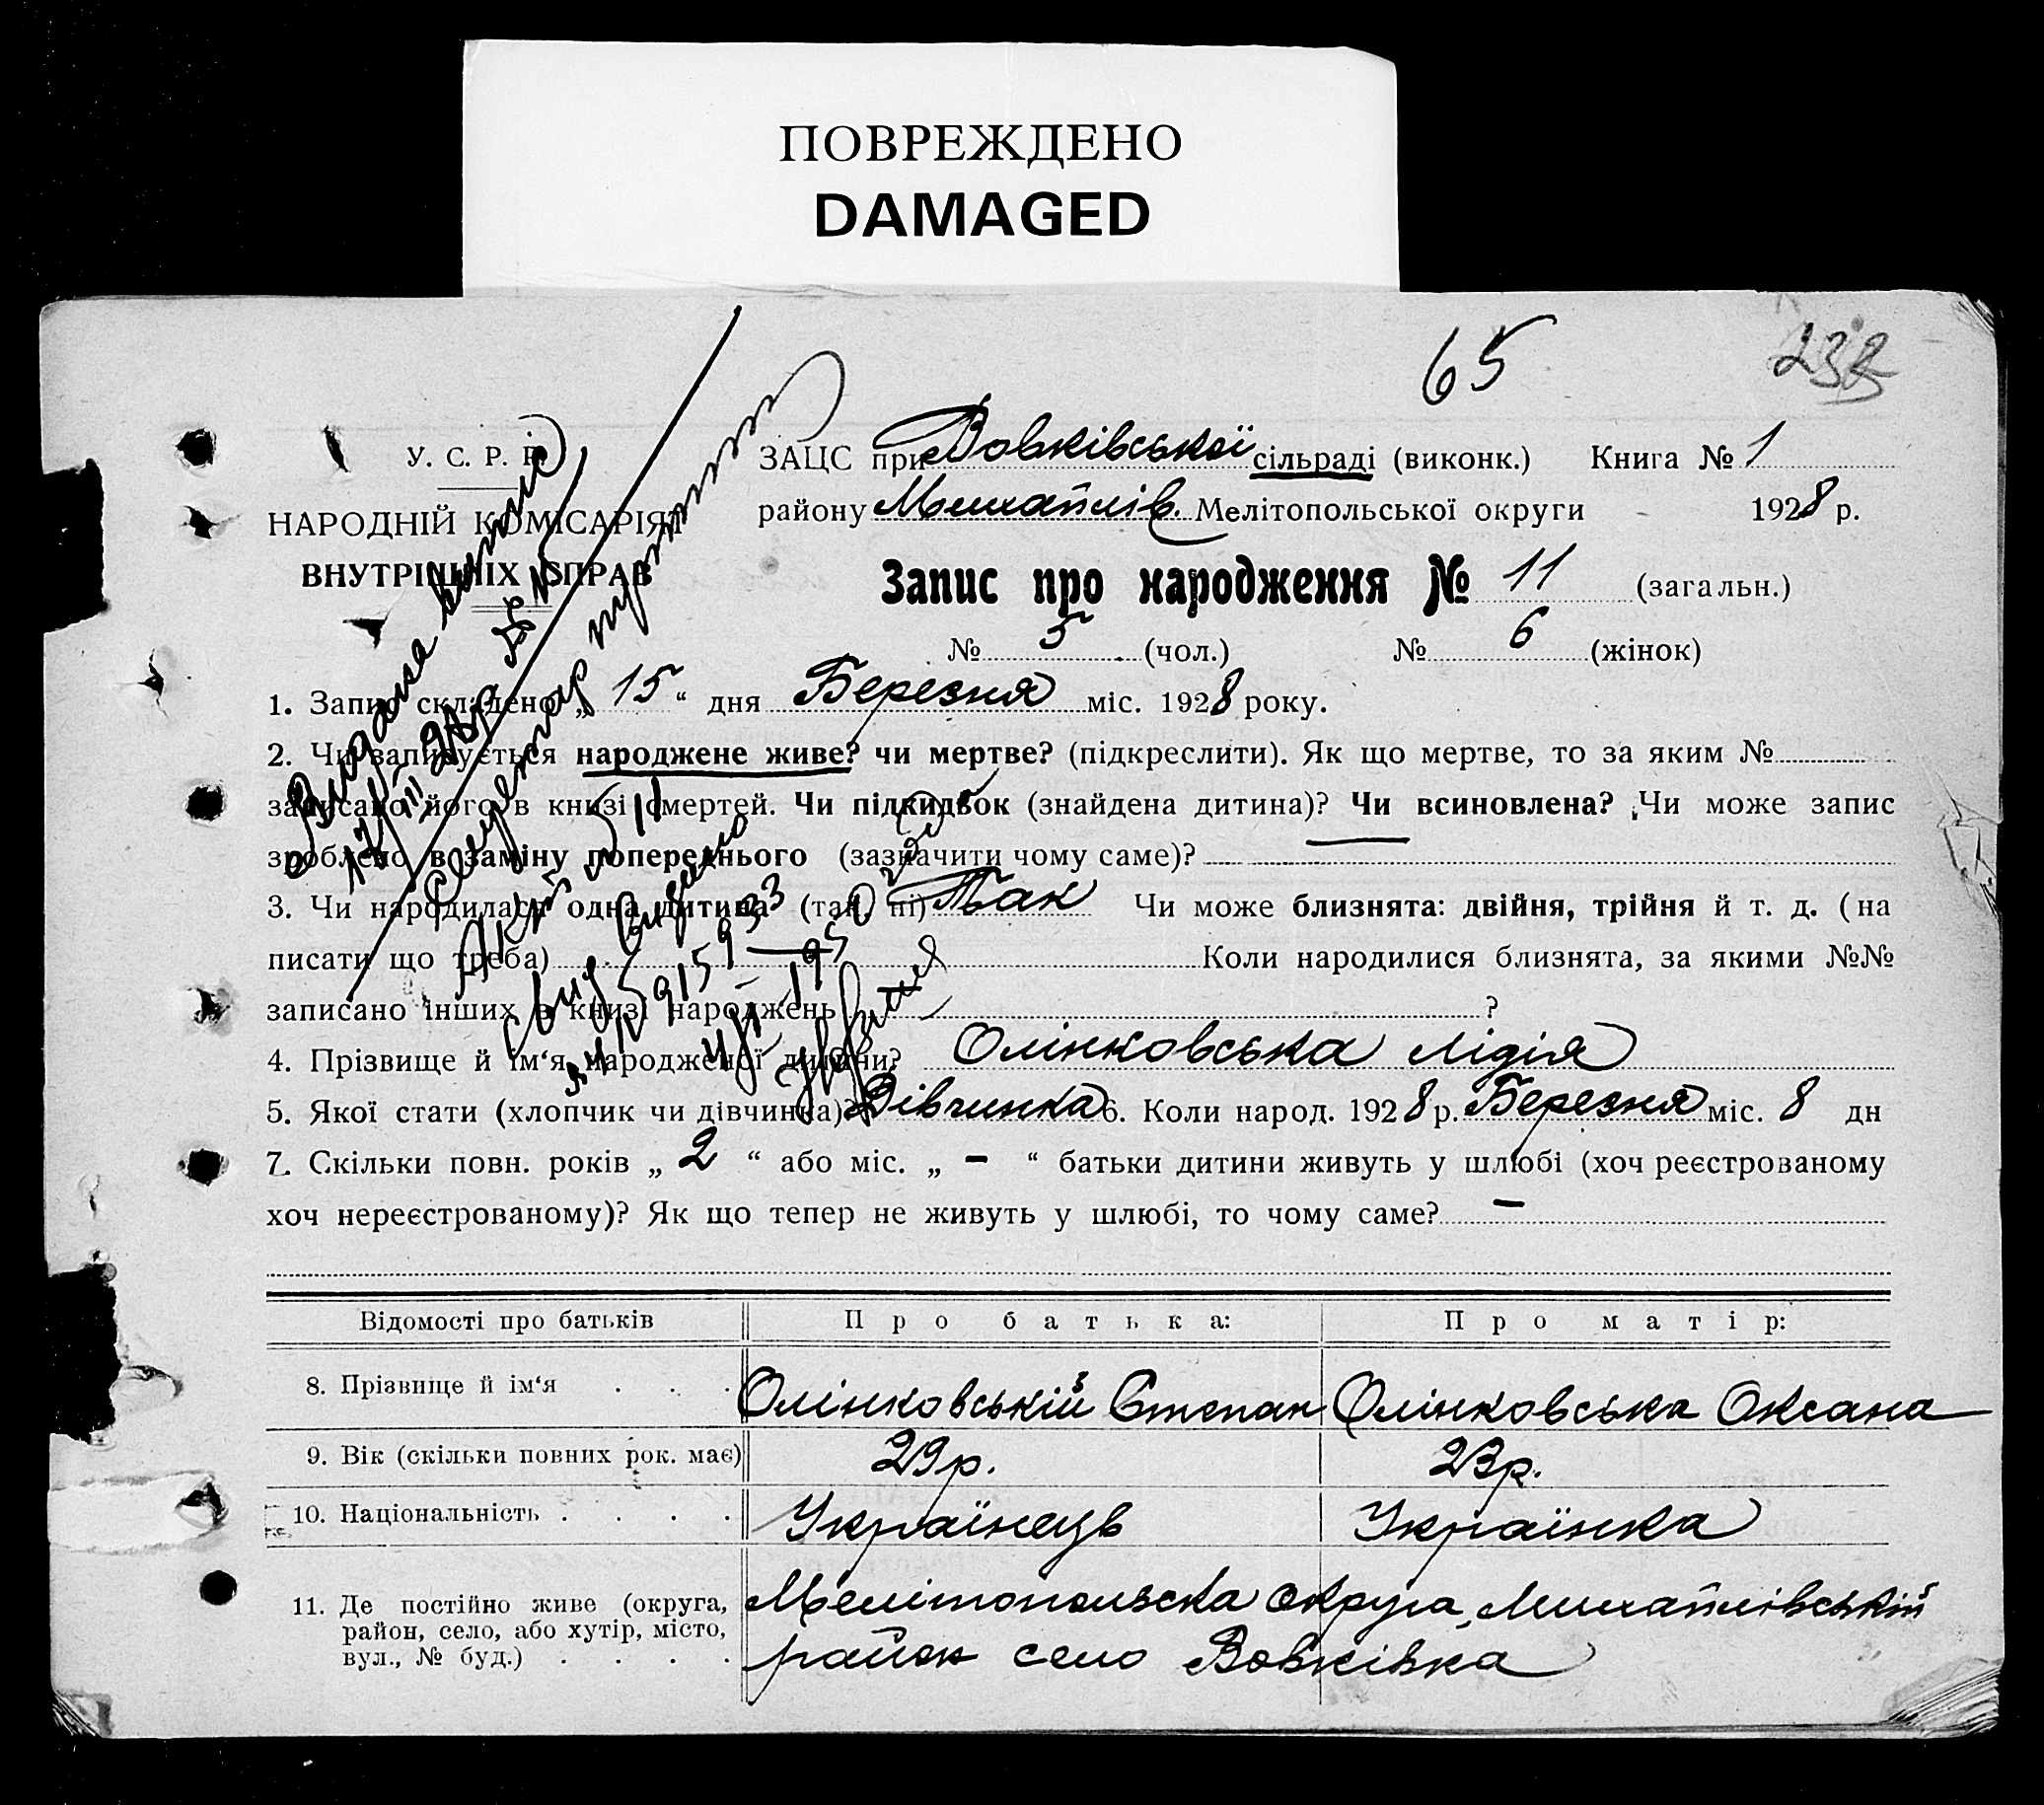 ПОВРЕЖДЕНО
DAMAGED
65
У. С. Р. Р.
НАРОДНІЙ КОМІСАРІЯТ
ВНУТРІШНІХ СПРАВ
ЗАЦС при Вовківської сільраді (виконк.) Книга № 1
району Михайлів. Мелітопольської округи 1928 р.
Запис про народження № 11 (загальн.)
№ 5 (чол.) № 6 (жінок)
1. Запис складено „15“ дня Березня міс. 1928 року.
2. Чи записується народжене живе? чи мертве? (підкреслити). Як що мертве, то за яким №
записано його в книзі смертей. Чи підкидьок (знайдена дитина)? Чи всиновлена? Чи може запис
зроблено в заміну попереднього (зазначити чому саме)?
3. Чи народилася одна дитина (так, ні) Так Чи може близнята: двійня, трійня й т. д. (на
писати що треба) Коли народилися близнята, за якими №№
записано інших в книзі народжень ?
4. Прізвище й ім‘я народженої дитини? Олінковська Лідія
5. Якої стати (хлопчик чи дівчинка)? Дівчинка 6. Коли народ. 1928 р. Березня міс. 8 дн
7. Скільки повн. років „2“ або міс. „-“ батьки дитини живуть у шлюбі (хоч реєстрованому
хоч нереєстрованому)? Як що тепер не живуть у шлюбі, то чому саме? -
Відомості про батьків Про батька: Про матір:
8. Прізвище й ім‘я . . . Олінковській Степан Олінковська Оксана
9. Вік (скільки повних рок. має) 29р. 23р.
10. Національність . . . . Українець Українка
11. Де постійно живе (округа, район, село, або хутір, місто, вул., № буд.) . . . .
Мелітопольска округа, Михайлівській
район село Вовківка
Видана виписка
Секретар
Акт № 11
Свид видано